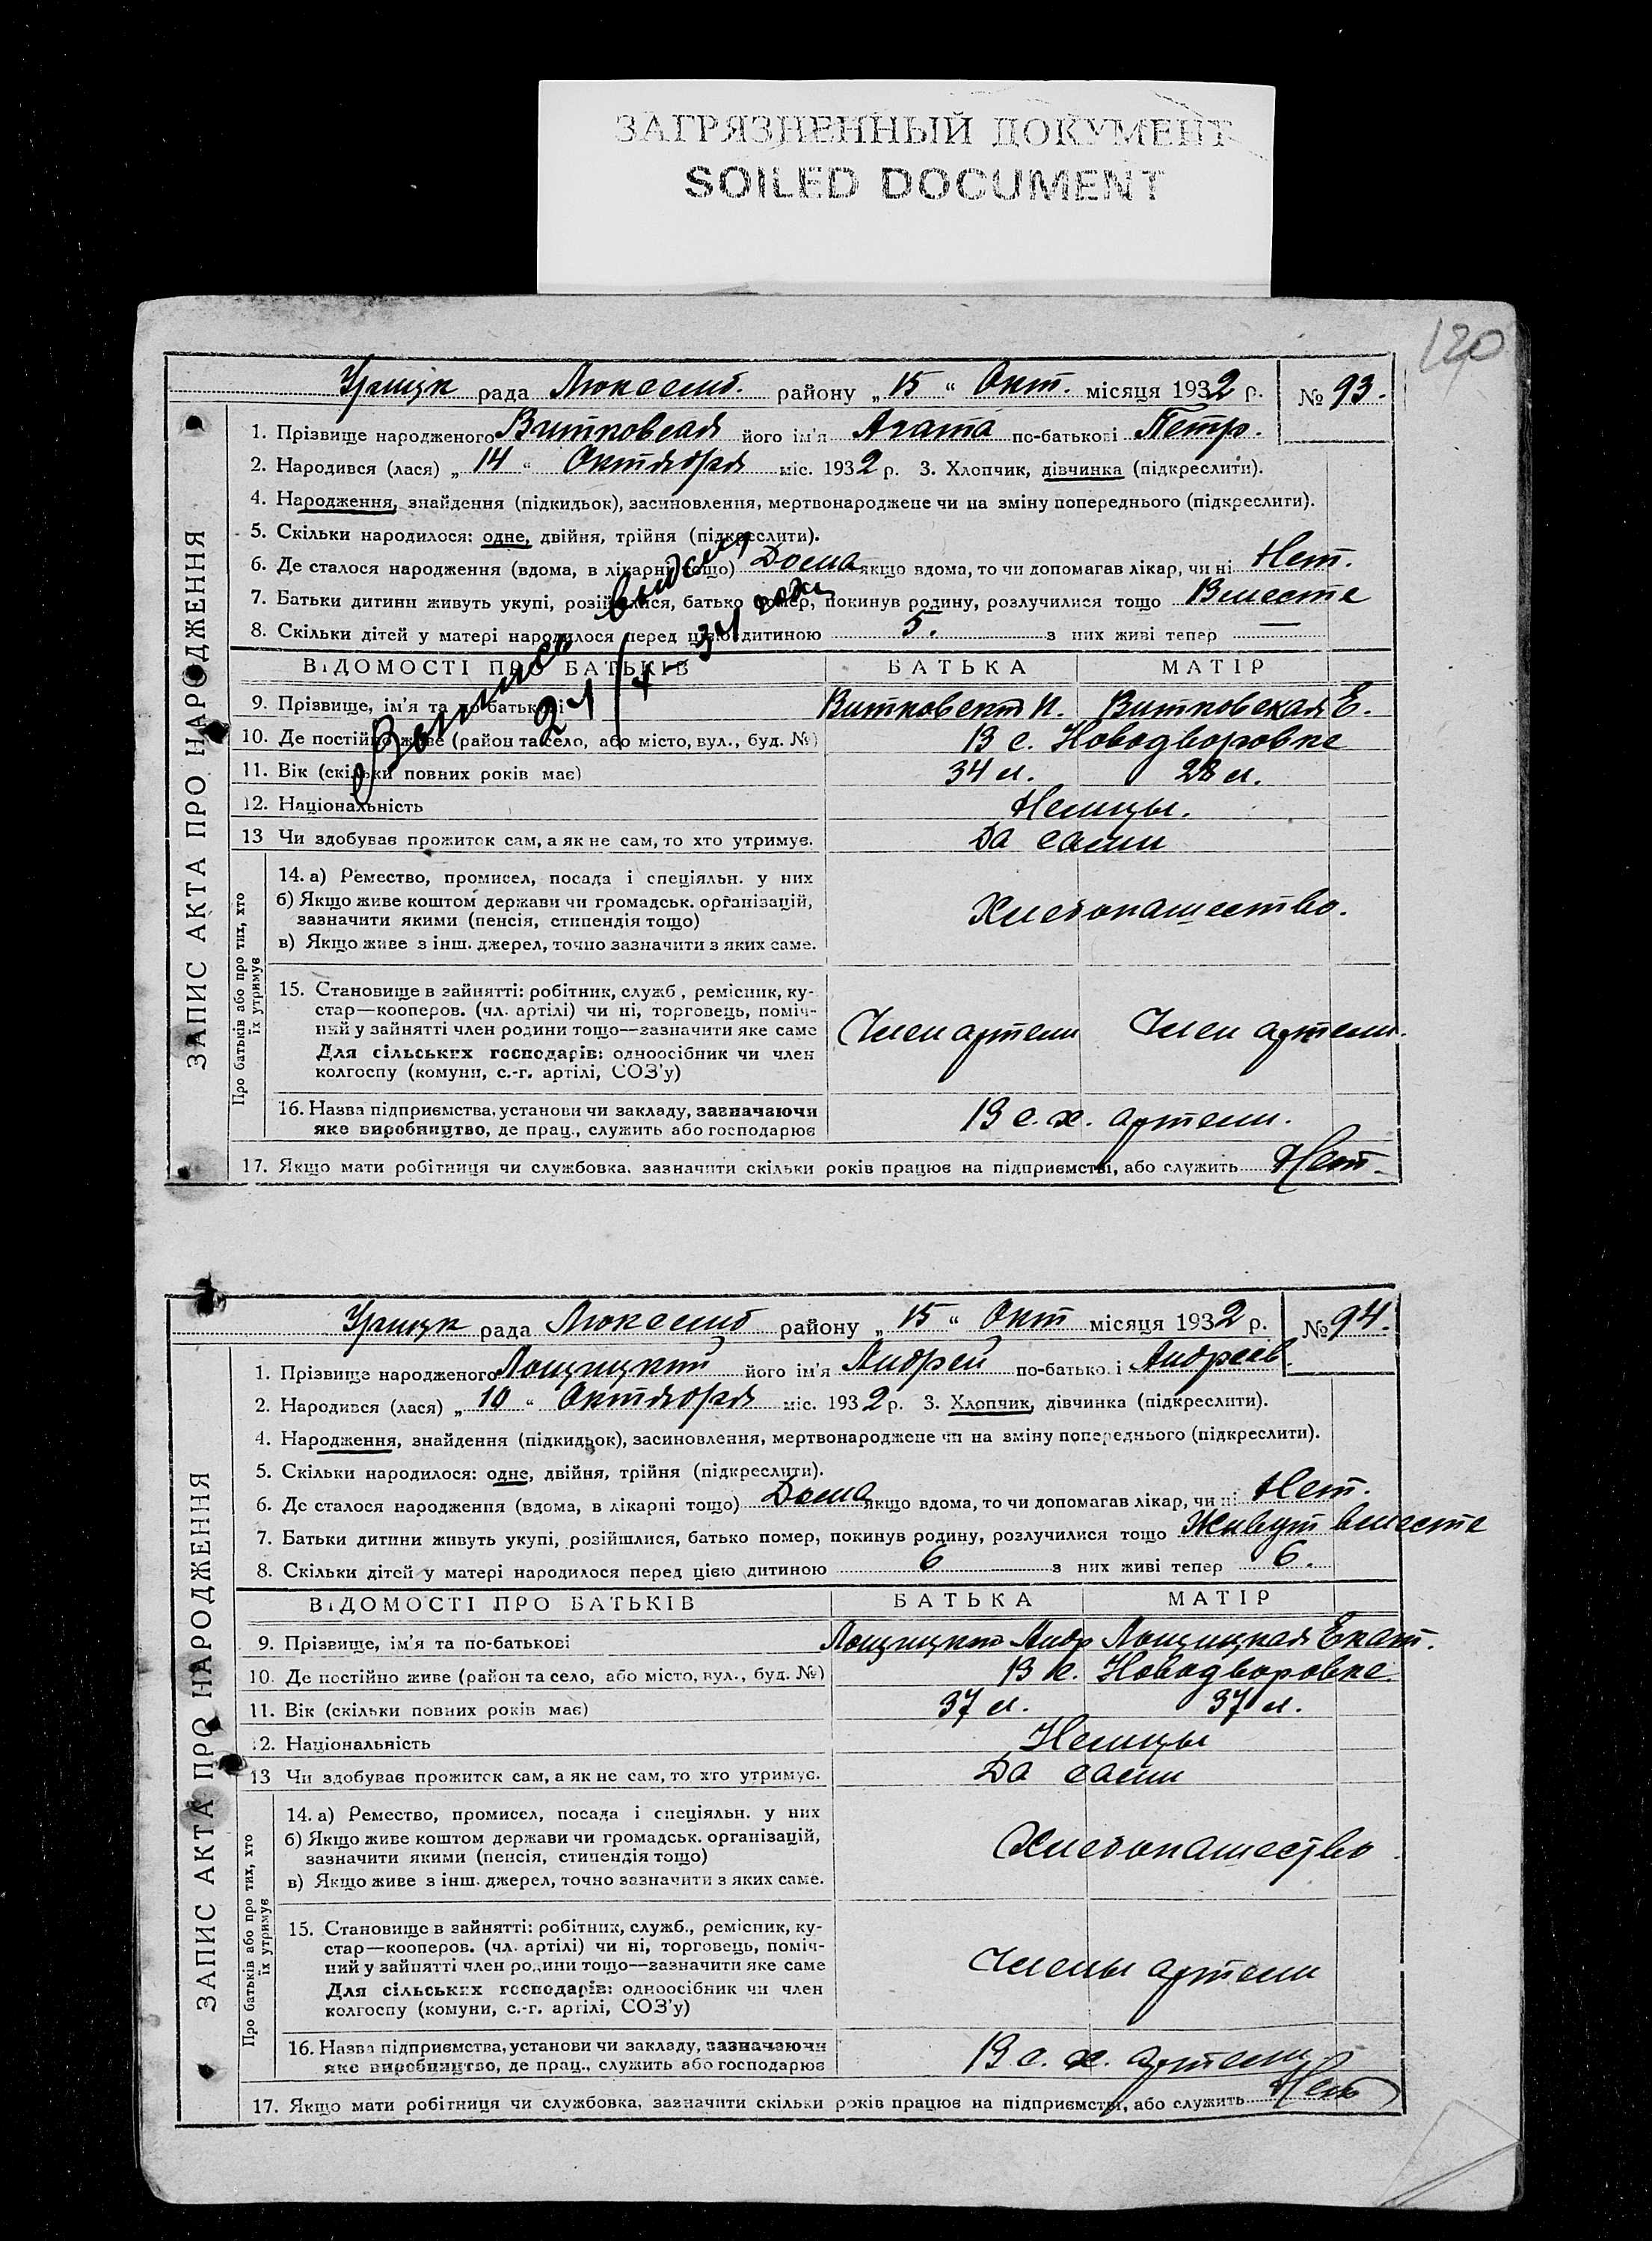 ЗАГРЯЗНЕННЫЙ ДОКУМЕНТ
SOILED DOCUMENT
120
рада Люксемб. району „15“ Окт. місяця 1932 р. № 93.
ЗАПИС АКТА ПРО НАРОДЖЕННЯ
1. Прізвище народженого Витковская його ім'я Агата по-батькові Петр.
2. Народився (лася) „14“ Октября міс. 1932 р. 3. Хлопчик, дівчинка (підкреслити).
4. Народження, знайдення (підкидьок), засиновлення, мертвонароджене чи на зміну попереднього (підкреслити).
5. Скільки народилося: одне, двійня, трійня (підкреслити).
6. Де сталося народження (вдома, в лікарні тощо) Дома якщо вдома, то чи допомагав лікар, чи ні Нет.
7. Батьки дитини живуть укупі, розійшлися, батько помер, покинув родину, розлучилися тощо Вместе
8. Скільки дітей у матері народилося перед цією дитиною 5. з них живі тепер —
ВІДОМОСТІ ПРО БАТЬКІВ БАТЬКА МАТІР
9. Прізвище, ім'я та по-батькові Витковский П. Витковская Е.
10. Де постійно живе (район та село, або місто, вул., буд. №) В с. Новодворовке
11. Вік (скільки повних років має) 34 л. 28 л.
12. Національність Немцы.
13 Чи здобуває прожиток сам, а як не сам, то хто утримує. Да сами
Про батьків або про тих, хто їх утримує
14. а) Ремество, промисел, посада і спеціяльн. у них
б) Якщо живе коштом держави чи громадськ. організацій,
зазначити якими (пенсія, стипендія тощо)
Хлебопашество.
в) Якщо живе з інш. джерел, точно зазначити з яких саме.
15. Становище в зайнятті: робітник, служб, ремісник, ку-
стар—кооперов. (чл. артілі) чи ні, торговець, поміч-
ний у зайнятті член родини тощо—зазначити яке саме Член артели Член артели.
Для сільських господарів: одноосібник чи член
колгоспу (комуни, с.-г. артілі, СОЗ'у)
16. Назва підприємства, установи чи закладу, зазначаючи
яке виробництво, де прац., служить або господарює В с. х. артели.
17. Якщо мати робітниця чи службовка, зазначити скільки років працює на підприємстві, або служить Нет.
рада Люксемб району „15“ Окт місяця 1932 р. № 94.
ЗАПИС АКТА ПРО НАРОДЖЕННЯ
1. Прізвище народженого його ім'я Андрей по-батькові Андреев.
2. Народився (лася) „10“ Октября міс. 1932 р. 3. Хлопчик, дівчинка (підкреслити).
4. Народження, знайдення (підкидьок), засиновлення, мертвонароджене чи на зміну попереднього (підкреслити).
5. Скільки народилося: одне, двійня, трійня (підкреслити).
6. Де сталося народження (вдома, в лікарні тощо) Дома якщо вдома, то чи допомагав лікар, чи ні Нет.
7. Батьки дитини живуть укупі, розійшлися, батько помер, покинув родину, розлучилися тощо Живут вместе
8. Скільки дітей у матері народилося перед цією дитиною 6 з них живі тепер 6.
ВІДОМОСТІ ПРО БАТЬКІВ БАТЬКА МАТІР
9. Прізвище, ім'я та по-батькові Андр Екат.
10. Де постійно живе (район та село, або місто, вул., буд. №) В с. Новодворовке.
11. Вік (скільки повних років має) 37 л. 37 л.
12. Національність Немцы
13 Чи здобуває прожиток сам, а як не сам, то хто утримує. Да сами
Про батьків або про тих, хто їх утримує
14. а) Ремество, промисел, посада і спеціяльн. у них
б) Якщо живе коштом держави чи громадськ. організацій,
зазначити якими (пенсія, стипендія тощо)
Хлебопашество
в) Якщо живе з інш. джерел, точно зазначити з яких саме.
15. Становище в зайнятті: робітник, служб., ремісник, ку-
стар—кооперов. (чл. артілі) чи ні, торговець, поміч-
ний у зайнятті член родини тощо—зазначити яке саме Члены артели
Для сільських господарів: одноосібник чи член
колгоспу (комуни, с.-г. артілі, СОЗ'у)
16. Назва підприємства, установи чи закладу, зазначаючи
яке виробництво, де прац., служить або господарює В с. х. артели
17. Якщо мати робітниця чи службовка, зазначити скільки років працює на підприємстві, або служить Нет